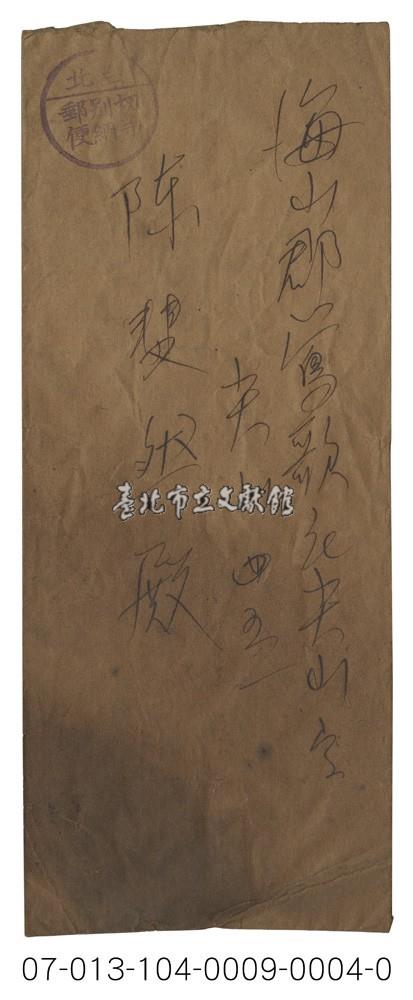 臺北
切手
別納
郵便
海山郡鶯歌庄尖山字
尖山 四五一
陳 然殿
臺北市立文獻館
07-013-104-0009-0004-0